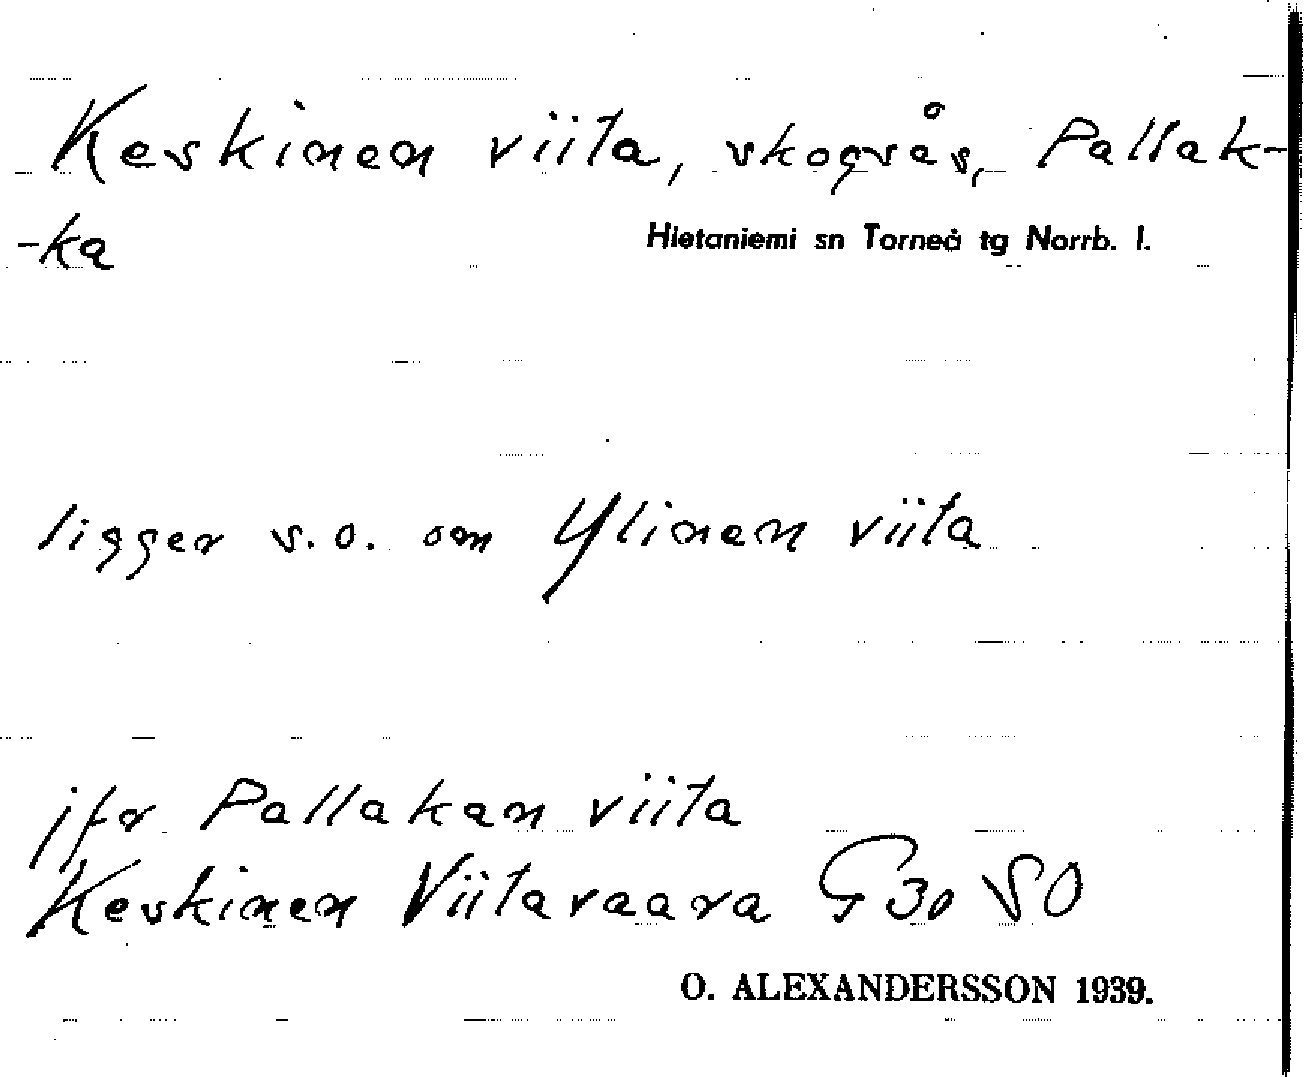 Keskinen viita, skogsås, Pallak-
-ka
Hietaniemi sn Torneå tg Norrb. l.
ligger s.o. om Ylinen viita
jfr Pallakan viita
Keskinen Viitavaara G 30 SO
O. ALEXANDERSSON 1939.